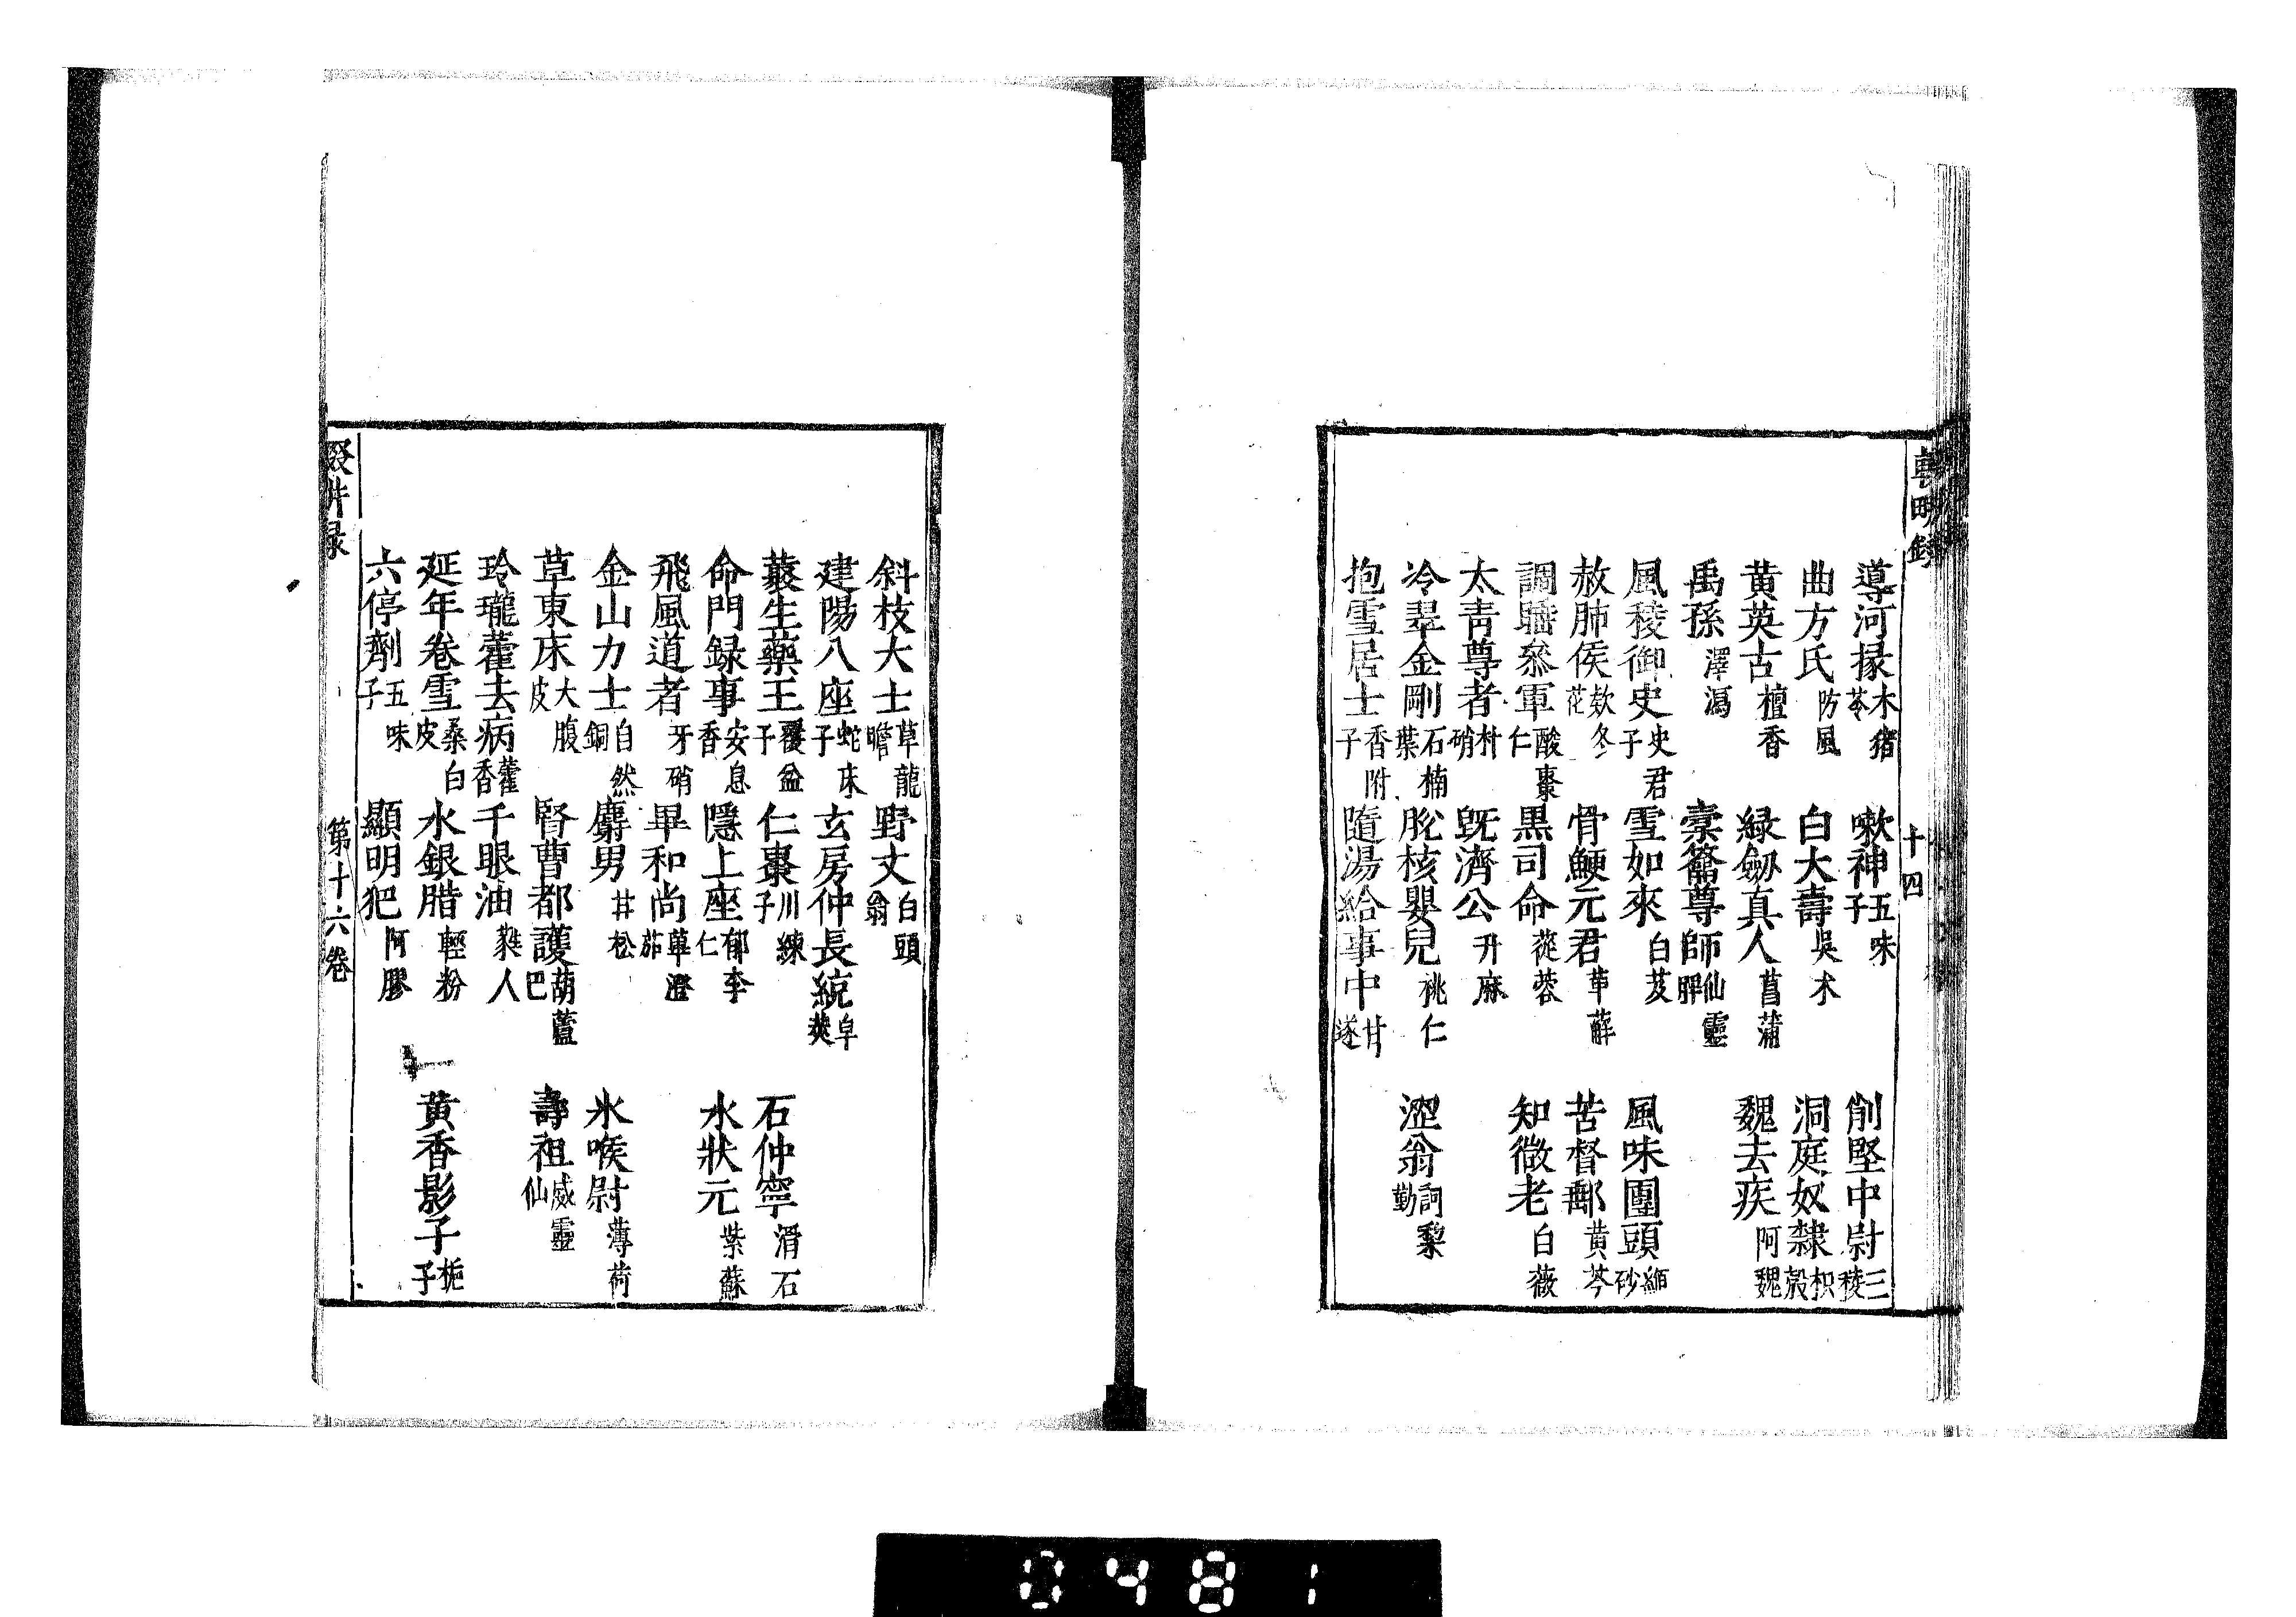 導河掾木猪苓　嗽神五味子　削堅中尉三稜
曲方氏防風　白大壽吳朮　洞庭奴隸枳殼
黄英古檀香　綠劒真人菖蒲　魏去疾阿魏
禹孫澤瀉　橐籥尊師仙靈脾
風稜御史史君子　雪如來白芨　風味團頭縮砂
赦肺侯欵冬花　骨鯁元君萆薢　苦督郵黄芩
調睡叅軍酸棗仁　黒司命蓯蓉　知微老白薇
太青尊者朴硝　既濟公升麻
冷翠金剛石楠葉　脫核嬰兒桃仁　澀翁訶黎勒
抱雪居士香附子　隨湯給事中甘遂
十四
斜枝大士草龍膽　野丈白頭翁
建陽八座蛇床子　玄房仲長統皁莢
藂生藥王覆盆子　仁棗川練子　石仲寧滑石
命門録事安息香　隱上座郁李仁　水狀元紫蘇
飛風道者牙硝　畢和尚蓽澄茄
金山力士自然銅　麝男甘松　氷喉尉薄荷
草東床大腹皮　腎曹都護葫蘆巴　壽祖威靈仙
玲瓏藿去病藿香　千眼油蕤人
延年卷雪桑白皮　水銀腊輕粉　黄香影子梔子
六停劑五味子　顯明犯阿膠
第十六卷
0481